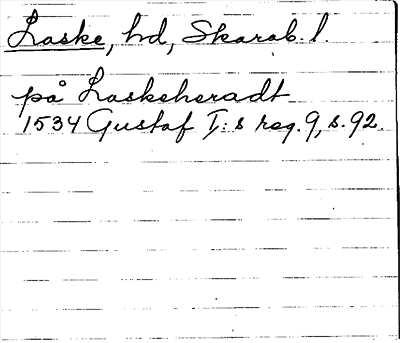 Laske, hd, Skarab. l.
på Laskeheradt
1534 Gustaf I:s reg. 9, s. 92.